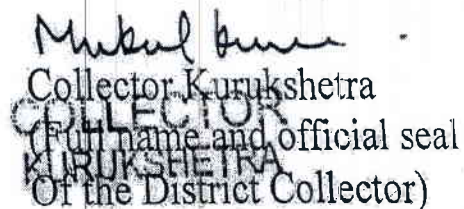 Mukul Kumar
Collector Kurukshetra
COLLECTOR
(Full name and official seal
KURUKSHETRA
Of the District Collector)